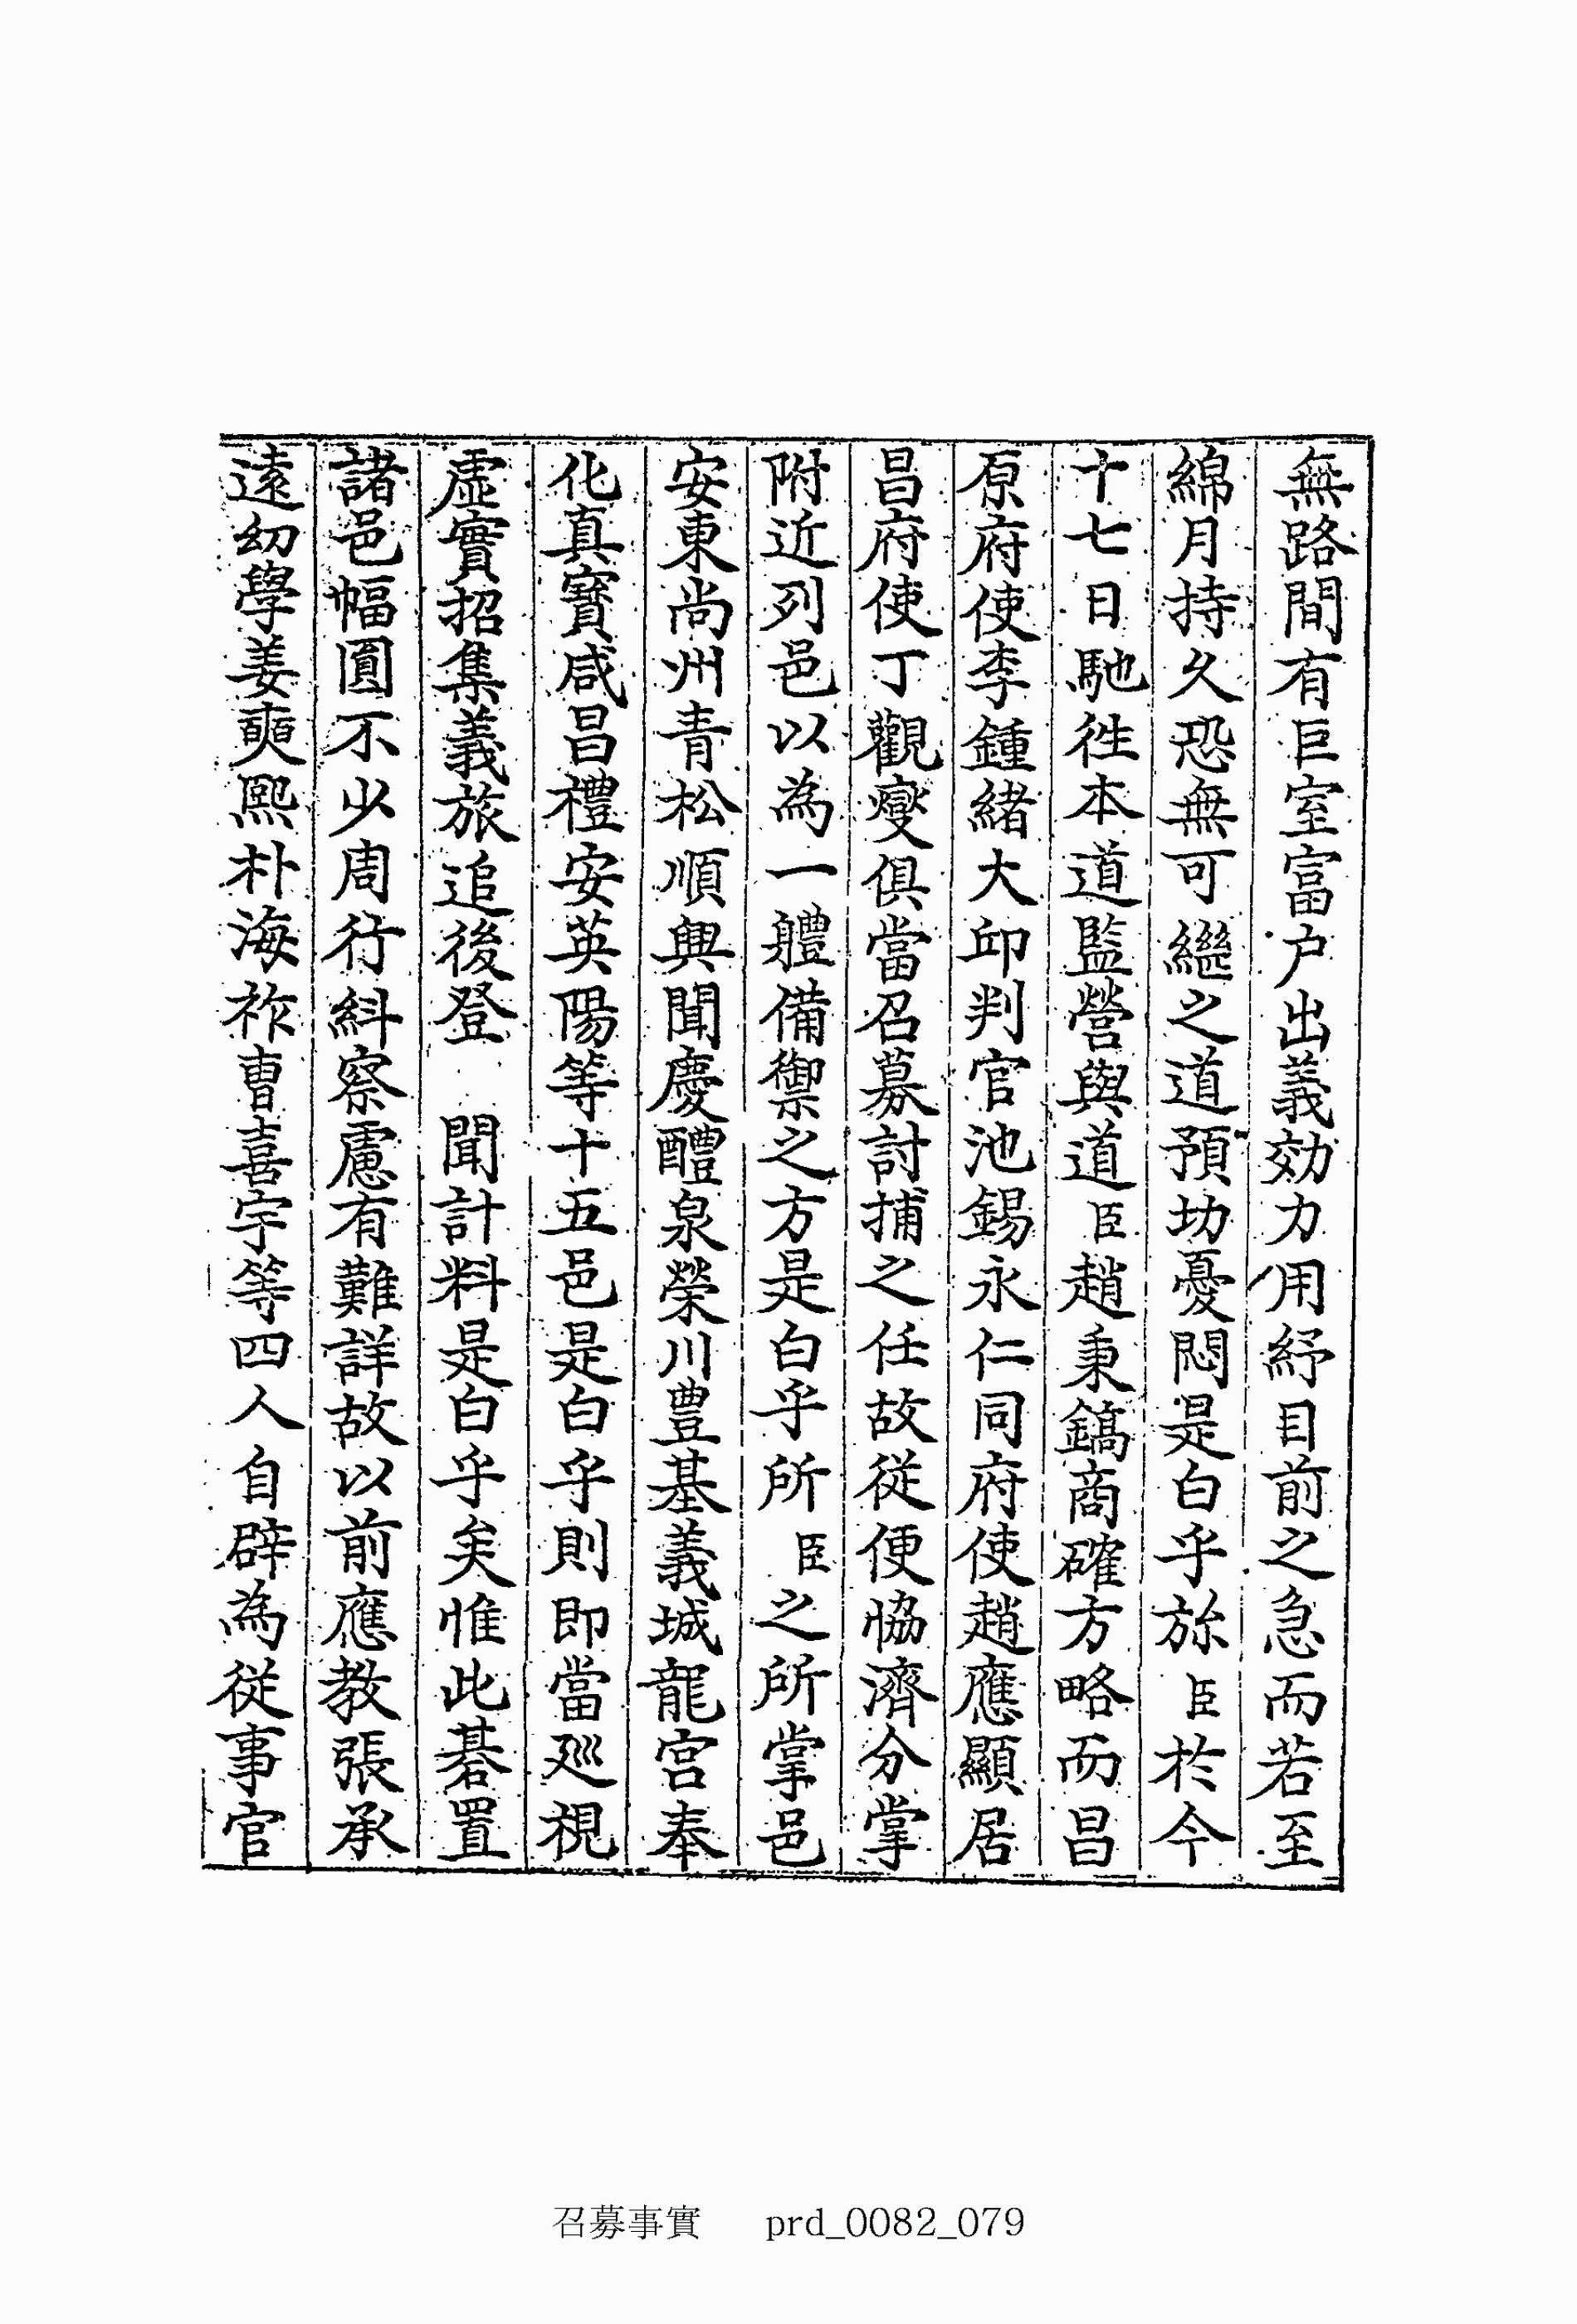 無路間有巨室富户出義効力用紓目前之急而若至
綿月持久恐無可繼之道預切憂悶是白乎旀臣於今
十七日馳徃本道監營與道臣趙秉鎬商確方略而昌
原府使李鍾緖大邱判官池錫永仁同府使趙應顯居
昌府使丁觀燮俱當召募討捕之任故從便恊濟分掌
附近列邑以為一軆備禦之方是白乎所臣之所掌邑
安東尚州青松順興聞慶醴泉榮川豊基義城龍宮奉
化真寶咸昌禮安英陽等十五邑是白乎則即當廵視
虛實招集義旅追後登 聞計料是白乎矣惟此碁置
諸邑幅圓不少周行糾察慮有難詳故以前應教張承
遠幼學姜奭熙朴海祚曺喜宇等四人自辟為從事官
召募事實 prd_0082_079